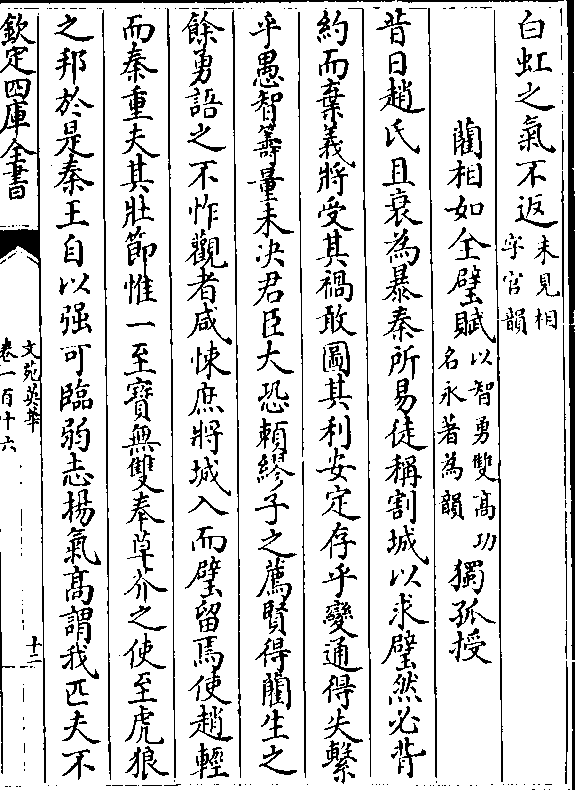 白虹之氣不返未見相字官韻
藺相如全璧賦以智勇雙高功名永著為韻 獨孤授
昔日趙氏且衰為暴秦所易徒稱割城以求璧然必背
約而棄義將受其禍敢圖其利安定存乎變通得失繫
乎愚智籌量未決君臣大恐頼繆子之薦賢得藺生之
餘勇語之不怍觀者咸悚庶將城入而璧留焉使趙輕
而秦重夫其壯節惟一至寳無雙奉草芥之使至虎狼
之邦於是秦王自以强可臨弱志揚氣髙謂我匹夫不
欽定四庫全書
文苑英華
卷一百十六
十二